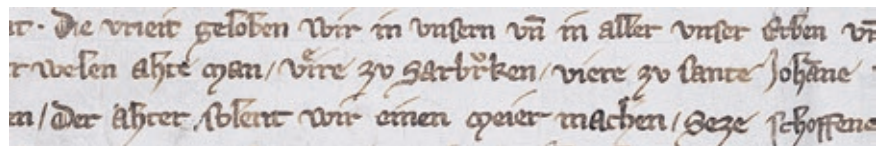 it · Die vrieit geloben wir in vnsern vñ in aller vnser Erben vñ
r welen ahte man / viͤre zv Sarbrͦken / viere zv sante Johāne
en / Der ahter solent wir einen meier machēn / Seze schoffene